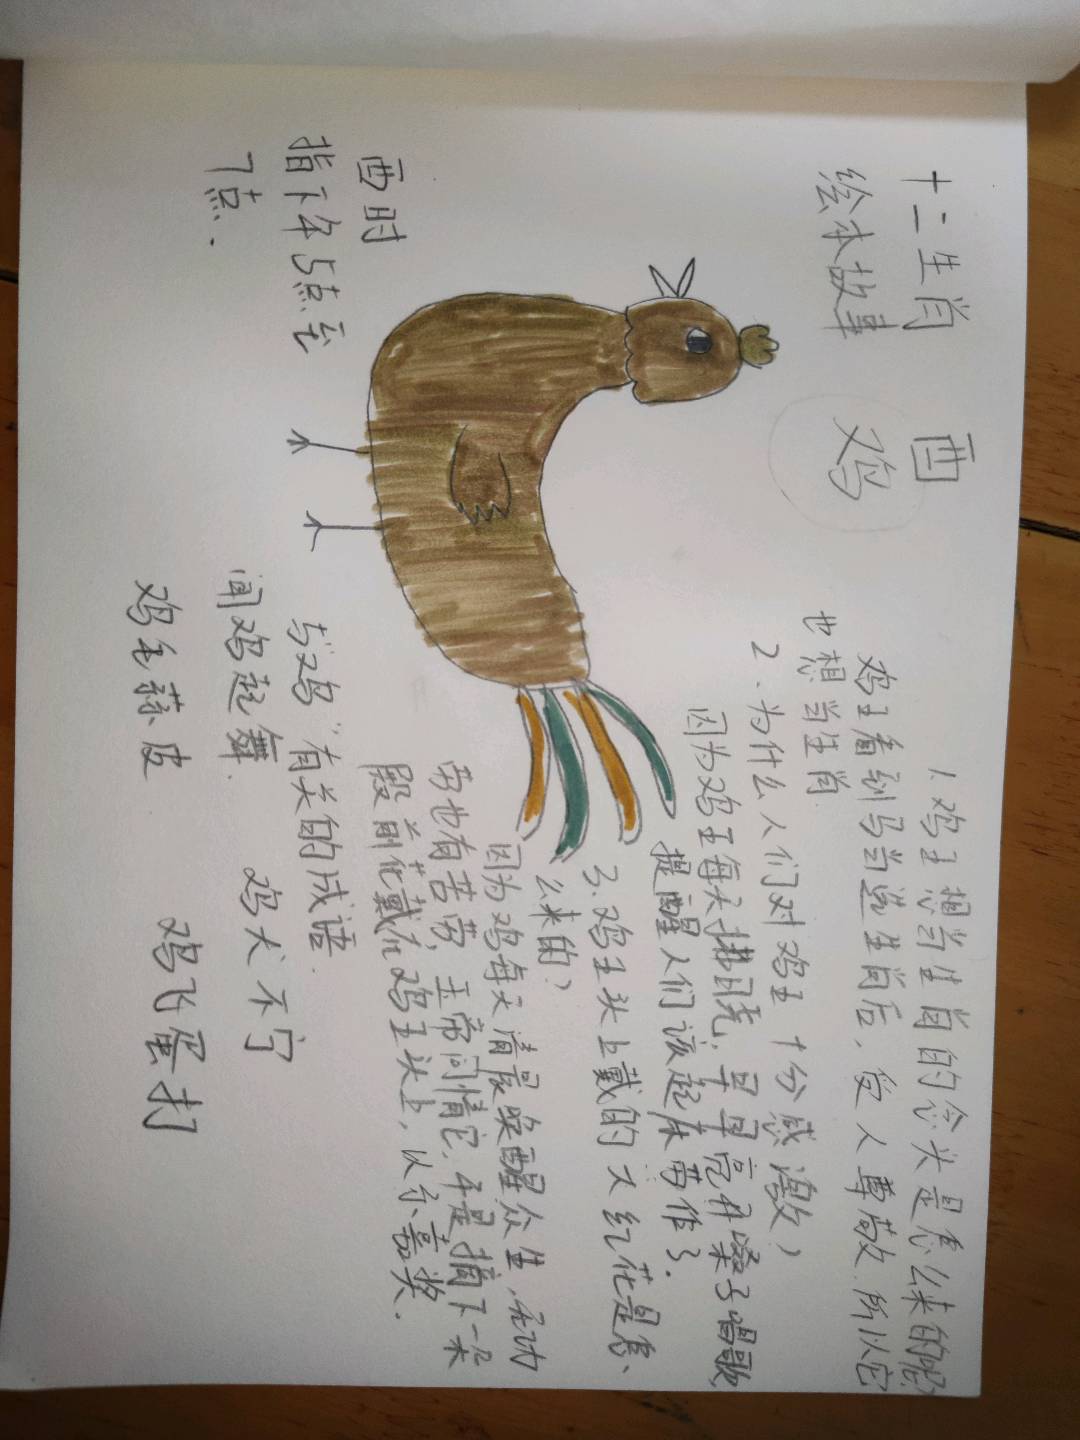 十二生肖
绘本故事
酉
鸡
1.鸡王想当生肖的念头是怎么来的呢
鸡王看到马当选生肖后，受人尊敬.所以它
也想当生肖.
2.为什么人们对鸡王十分感激?
因为鸡王每天拂晓，早早亮开嗓子唱歌
提醒人们该起床劳作了.
3.鸡王头上戴的大红花是怎
么来的?
因为鸡每天清晨唤醒众生,无功
劳也有苦劳,玉帝问情它,于是摘下一朵
殿前花戴在鸡王头上,以示嘉奖.
酉时
指下午5点至
7点.
与"鸡"有关的成语.
闻鸡起舞.
鸡犬不宁
鸡毛蒜皮
鸡飞蛋打